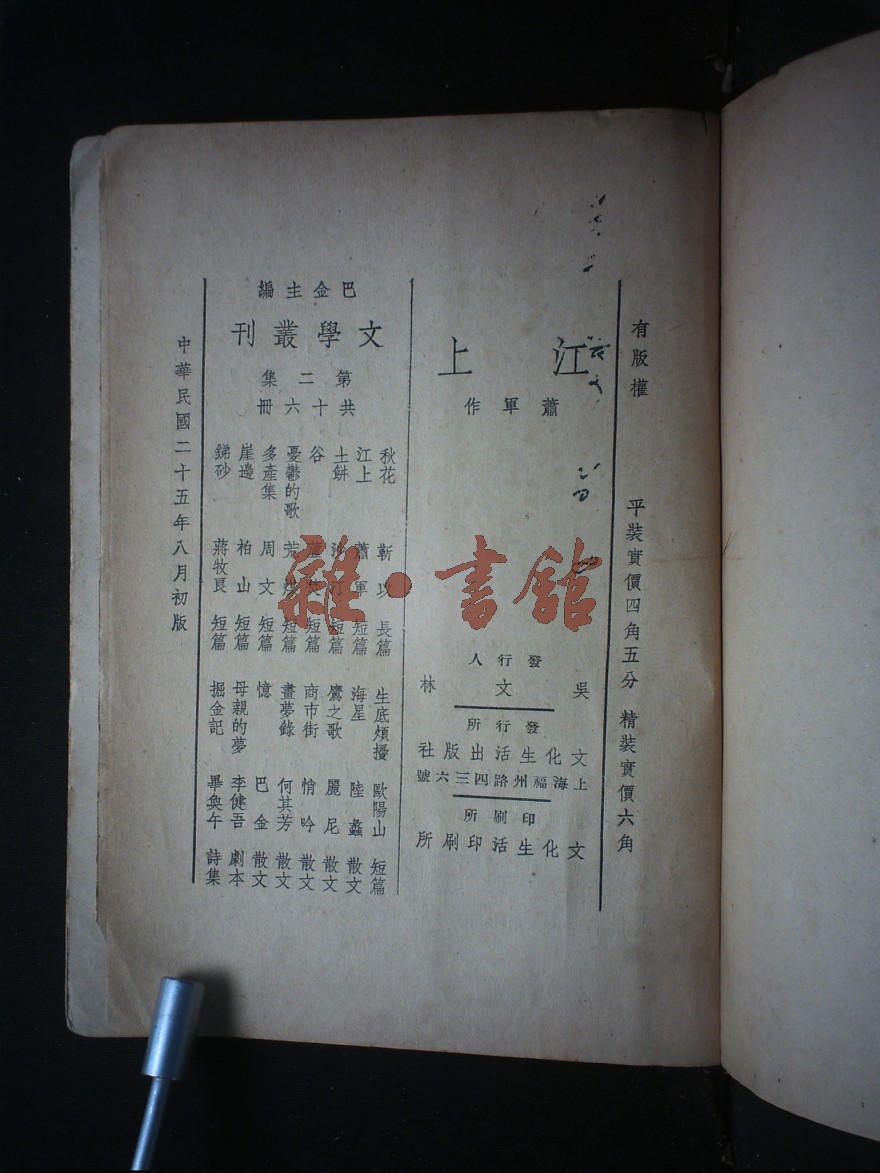 有版權 平裝實價四角五分 精裝實價六角
江上
蕭軍作
發行人
吳文林
發行所
文化生活出版社
上海福州路四三六號
印刷所
文化生活印刷所
巴金主編
文學叢刊
第二集
共十六冊
秋花 靳以 長篇
江上 蕭軍 短篇
土餅 沙汀 短篇
谷 蘆焚 短篇
憂鬱的歌 荒煤 短篇
多產集 周文 短篇
崖邊 柏山 短篇
銻砂 蔣牧良 短篇
生底煩擾 歐陽山 短篇
海星 陸蠡 散文
鷹之歌 麗尼 散文
商市街 悄吟 散文
畫夢錄 何其芳 散文
憶 巴金 散文
母親的夢 李健吾 劇本
掘金記 畢奐午 詩集
中華民國二十五年八月初版
雜·書館